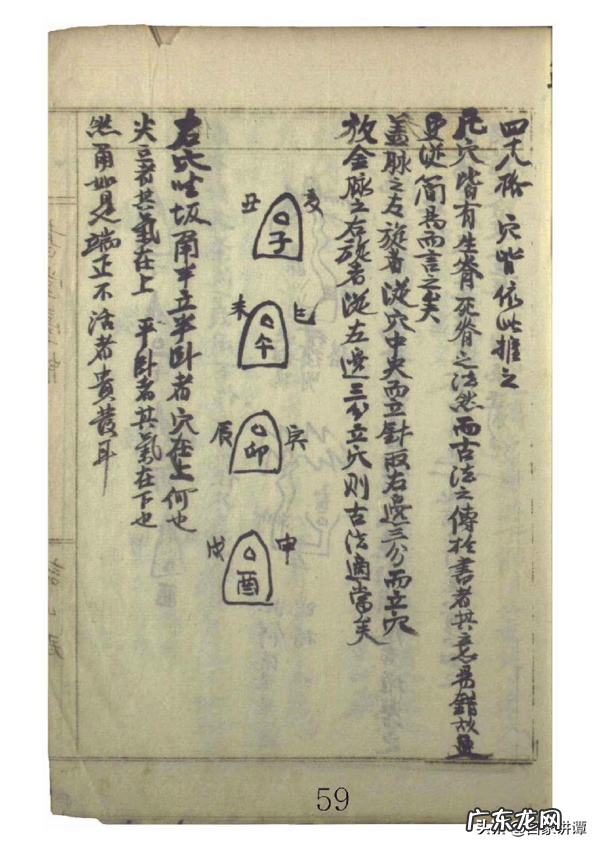 四大格 穴皆依此推之
凡穴皆有生脊死脊之法然而古法之傳於書者其言易錯故
從簡易而言之矣
蓋脉之左旋者從穴中央而立針取右邊三分而立穴
放金脉之右旋者從左邊三分立穴則古法適當矣
丑 子 亥
未 午 巳
辰 卯 寅
戌 酉 申
右穴坐坂 半立半卧者穴在上何也
尖立者其氣在上 平卧者其氣在下也
然 如是端正不活者貴發耳
59
广东龙网
头条 @百家讲谭